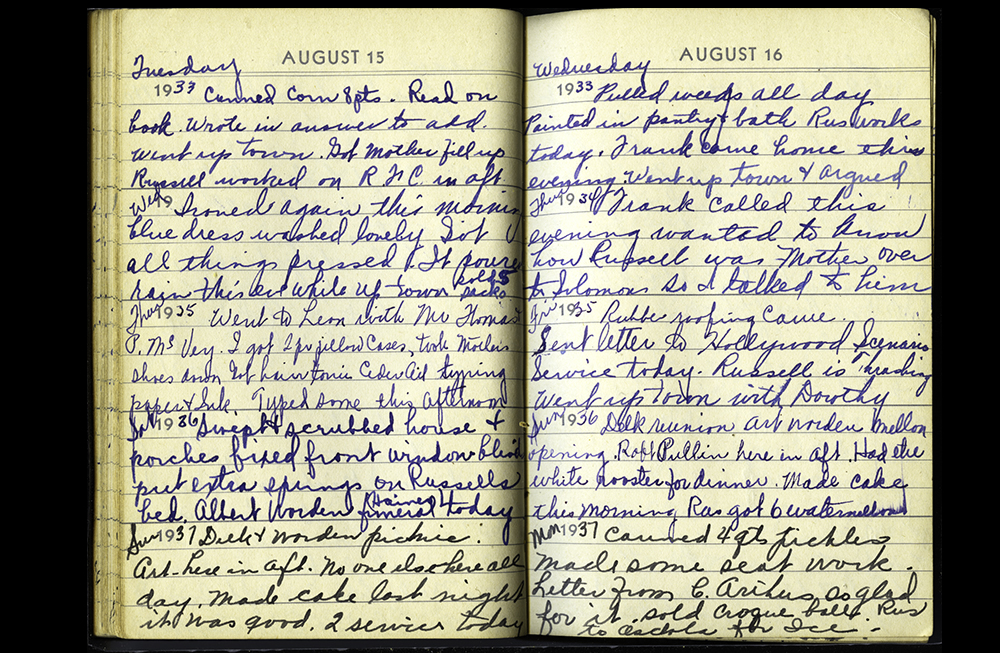 AUGUST 15
Tuesday
1933 Canned Corn 8pts. Read on
book. Wrote in answer to add.
Went up town. Got Mother fill up
Russell worked on R.F.C. in aft.
Wed 19 Ironed again this morning
blue dress washed lovely Got
all things pressed. It poured
rain this eve while up town
sacks
Thur 1935 Went to Leon with Mr Thomas
P. Mc Vey. I got 2 pr pillow cases, took Mothers
shoes down Got hair tonic Cedar Aid typing
paper & Ink. Typed some this afternoon
Sat 1936 Swept & scrubbed house &
porches fixed front window blind
put extra springs on Russells
bed. Albert Worden funeral today
Sun 1937 Delk & Worden picnic.
Art here in aft. No one else here all
day. Made cake last night
it was good. 2 service today
AUGUST 16
Wednesday
1933 Pulled weeds all day
Painted in pantry & bath Rus works
today. Frank came home this
evening. Went up town & argued
Thur 1934 Frank called this
evening wanted to know
how Russell was Mother over
to Solomons so I talked to him
Fri 1935 Rubber roofing came.
Sent letter to Hollywood Scenario
Service today. Russell is thrashing
Went up town with Dorothy
Sun 1936 Delk reunion. Art Worden mellon
opening. Robt Pullin here in aft. Had the
white rooster for dinner. Made cake
this morning Rus got 6 watermellons
Mon 1937 Canned 4 qts pickles
made some seat work.
Letter from C. so glad
for it. sold croque balls. Rus
to for Ice.